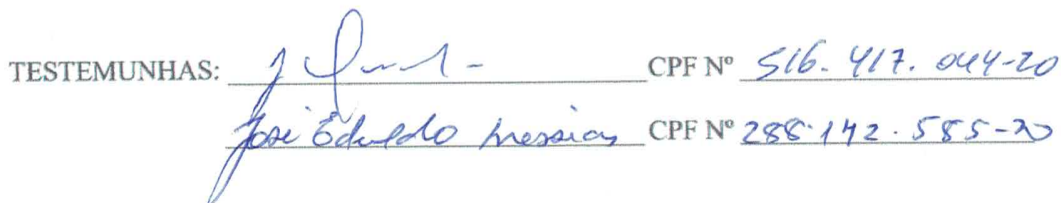 TESTEMUNHAS: CPF Nº 516.417.044-20
José Edualdo Messias CPF Nº 288.142.585-20